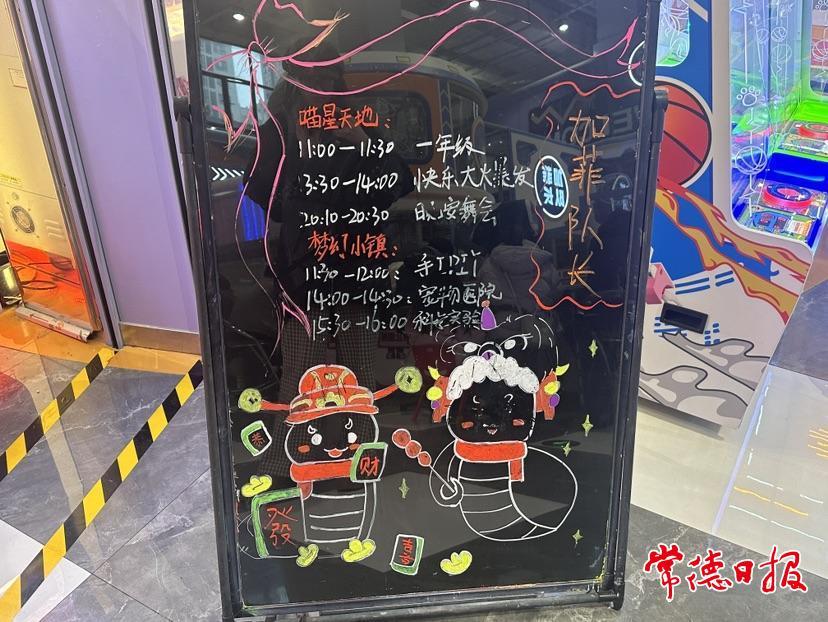 喵星天地：
11:00—11:30 一年级
13:30—14:00 快乐大火爆发
20:10-20:30 晚安舞会
梦幻小镇：
11:30—12:00：手工
14:00—14:30：宠物医院
15:30—16:00 科学实验
加菲队长
恭
财
發
喜
常德日报